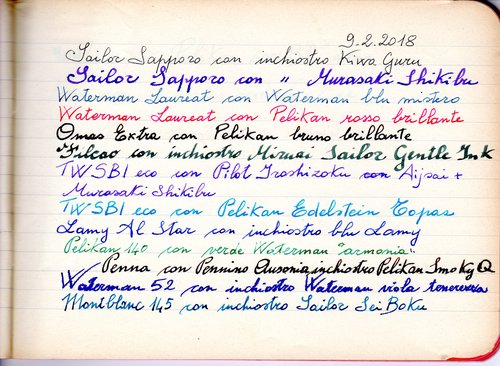 9.2.2018
Sailor Sapporo con inchiostro Kiwa Guru
Sailor Sapporo con " Murasaki Shikibu
Waterman Laureat con Waterman blu mistero
Waterman Laureat con Pelikan rosso brillante
Omas Extra con Pelikan bruno brillante
Filcao con inchiostro Miruai Sailor Gentle Ink
TWSBI eco con Pilot Iroshizoku con Ajisai +
Murasaki Shikibu
TWSBI eco con Pelikan Edelstein Topas
Lamy Al Star con inchiostro blu Lamy
Pelikan 140 con verde Waterman "armonia"
Penna con Pennino Ausonia, inchiostro Pelikan Smoky Q
Waterman 52 con inchiostro Waterman viola
Montblanc 145 con inchiostro Sailor Sei Boku